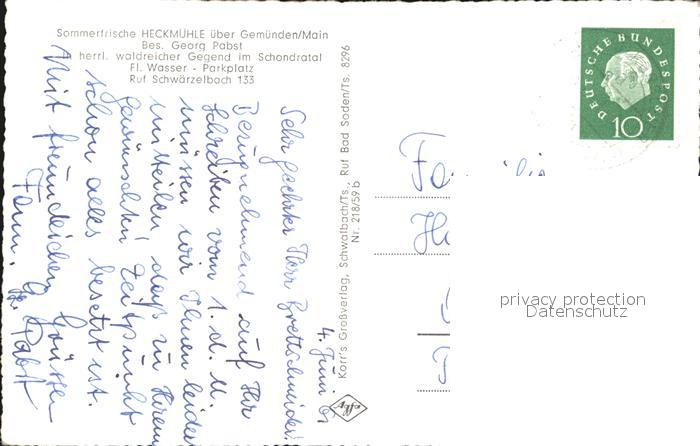 Sommerfrische HECKMÜHLE über Gemünden/Main
Bes. Georg Pabst
In herrl. waldreicher Gegend im Schondratal
Fl. Wasser - Parkplatz
Ruf Schwärzelbach 133
4. Juni 61
Sehr geehrter Herr Brettschneider!
Bezugnehmend auf Ihr
Schreiben vom 1. d. M.
müssen wir Ihnen leider
mitteilen, daß zu Ihrem
gewünschten Zeitpunkt
schon alles besetzt ist.
Mit freundlichen Grüssen
Fam. G. Pabst
Korr's Großverlag, Schwalbach/Ts., Ruf Bad Soden/Ts. 8296
Nr. 218/59 b
Agfa
DEUTSCHE BUNDESPOST
10
privacy protection
Datenschutz